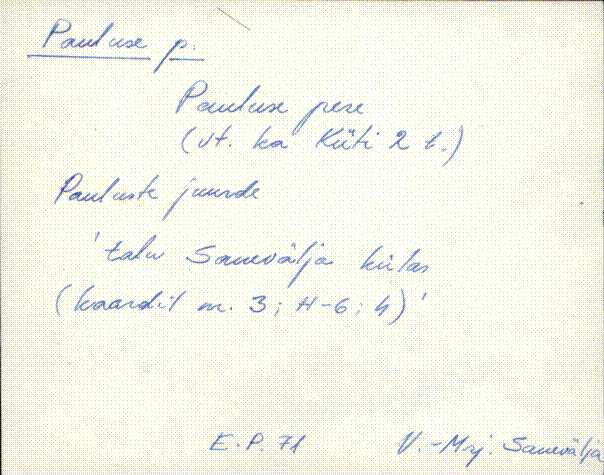 Pauluse p.
Pauluse pere
(vt. ka Küti 2 t.)
Pauluste juurde
'talu Sanevälja külas
(kaardil nr. 3; H-6; 4)'
E.P. 71 V.-Mrj. Sanevälja